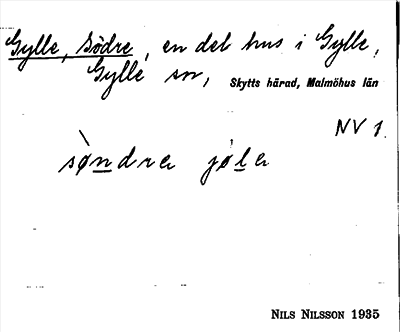 Gylle, Södre, en del hus i Gylle,
Gylle sn, Skytts härad, Malmöhus län
NV 1.
sø̀n̲drə jø̀l̲ə
NILS NILSSON 1935